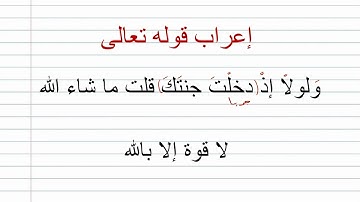 إعراب قوله تعالى
وَلولاً إذْ (دخلْتَ جنتَكَ) قلت ما شاء الله
لا قوة إلا بالله